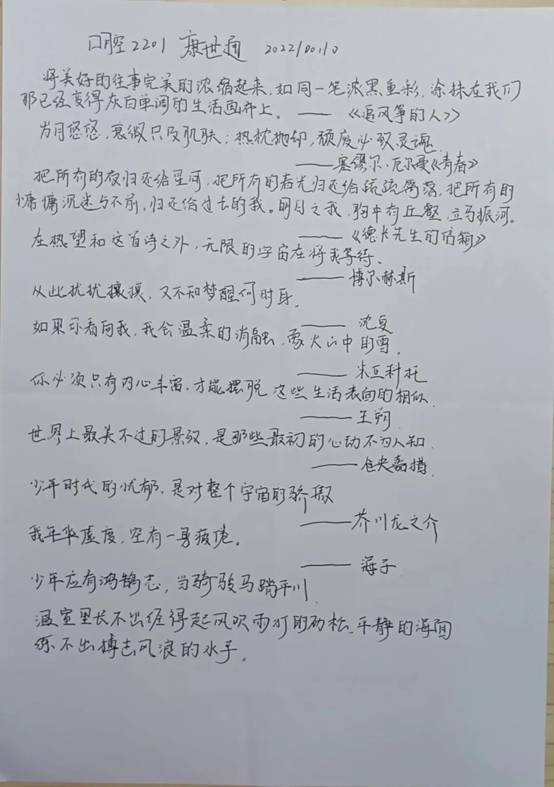 口腔2201 康世通 2022100110
将美好的往事完美的浓缩起来,如同一笔浓墨重彩,涂抹在我们
那已经变得灰白单调的生活画布上。 ——《追风筝的人》
岁月悠悠,衰微只及肌肤;热忱抛却,颓废必致灵魂
——塞缪尔·厄尔曼《青春》
把所有的夜归还给星河,把所有的春光归还给疏疏篱落,把所有的
慵慵沉迷与不前,归还给过去的我。明日之我,胸中有丘壑,立马振河。
——《德卡先生的信箱》
在热望和这首诗之外,无限的宇宙在将我等待。
——博尔赫斯
从此扰扰攘攘,又不知梦醒何时耳。
—— 沈复
如果可看向我,我会温柔的消融,像火山中的雪。
—— 米亚科托
你必须只有内心丰富,才能摆脱这些生活表面的相似
——王朔
世界上最美不过的景致,是那些最初的心动不为人知
——仓央嘉措
少年时代的忧郁,是对整个宇宙的骄傲
——芥川龙之介
我年华虚度,空有一身疲倦。
—— 海子
少年应有鸿鹄志,当骑骏马踏平川
温室里长不出经得起风吹雨打的劲松,平静的海面
练不出搏击风浪的水手。